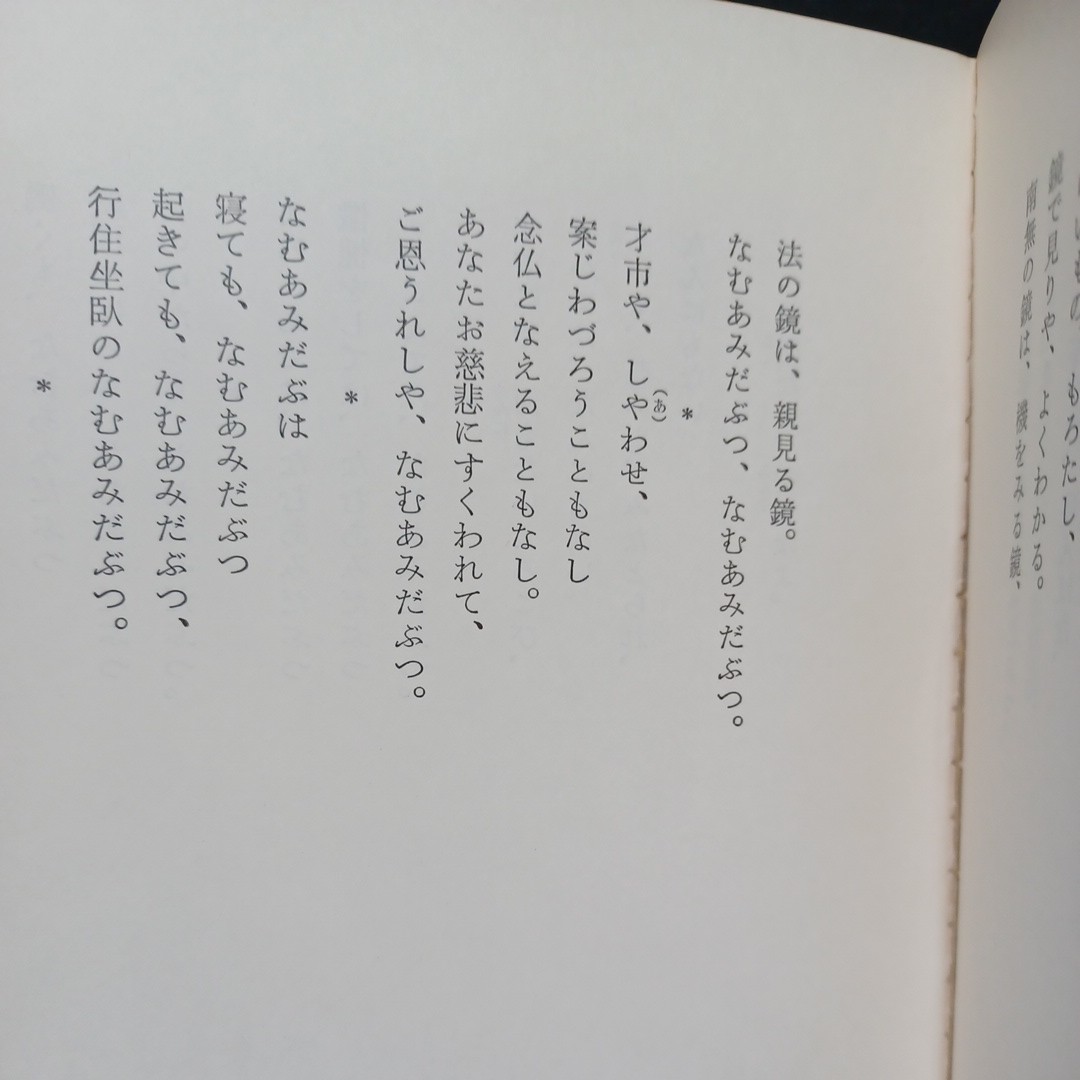 もろたし、
鏡で見りや、よくわかる。
南無の鏡は、機をみる鏡、
法の鏡は、親見る鏡。
なむあみだぶつ、なむあみだぶつ。
*
才市や、しやわせ、
(あ)
案じわづろうこともなし
念仏となえることもなし。
あなたお慈悲にすくわれて、
ご恩うれしや、なむあみだぶつ。
*
なむあみだぶは
寝ても、なむあみだぶつ
起きても、なむあみだぶつ、
行住坐臥のなむあみだぶつ。
*